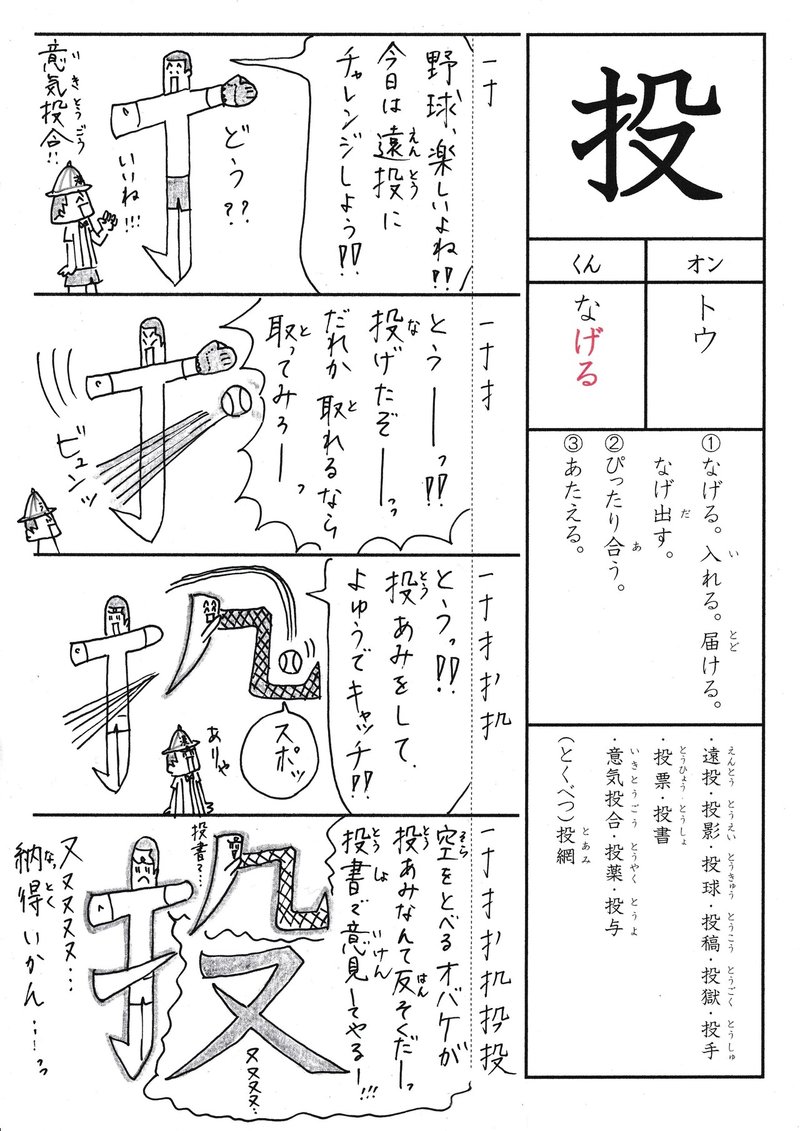 投
オン
トウ
くん
なげる
①なげる。入れる。届ける。
なげ出す。
②ぴったり合う。
③あたえる。
・遠投・投影・投球・投稿・投獄・投手
・投票・投書
・意気投合・投薬・投与
(とくべつ)投網
一ナ
野球、楽しいよね!!
今日は遠投に
チャレンジしよう!!
どう??
いいね!!!
意気投合!!
一ナ扌
とうーっ!!
投げたぞーっ
だれか取れるなら
取ってみろーっ
ビュンッ
とうっ!!
投あみをして、
よゆうでキャッチ!!
スポッ
ありゃ
空をとべるオバケが
投あみなんて反そくだーっ
投書で意見してやるー!!!
投書で…
又又又又…
又又又又又…
納得いかん…!っ